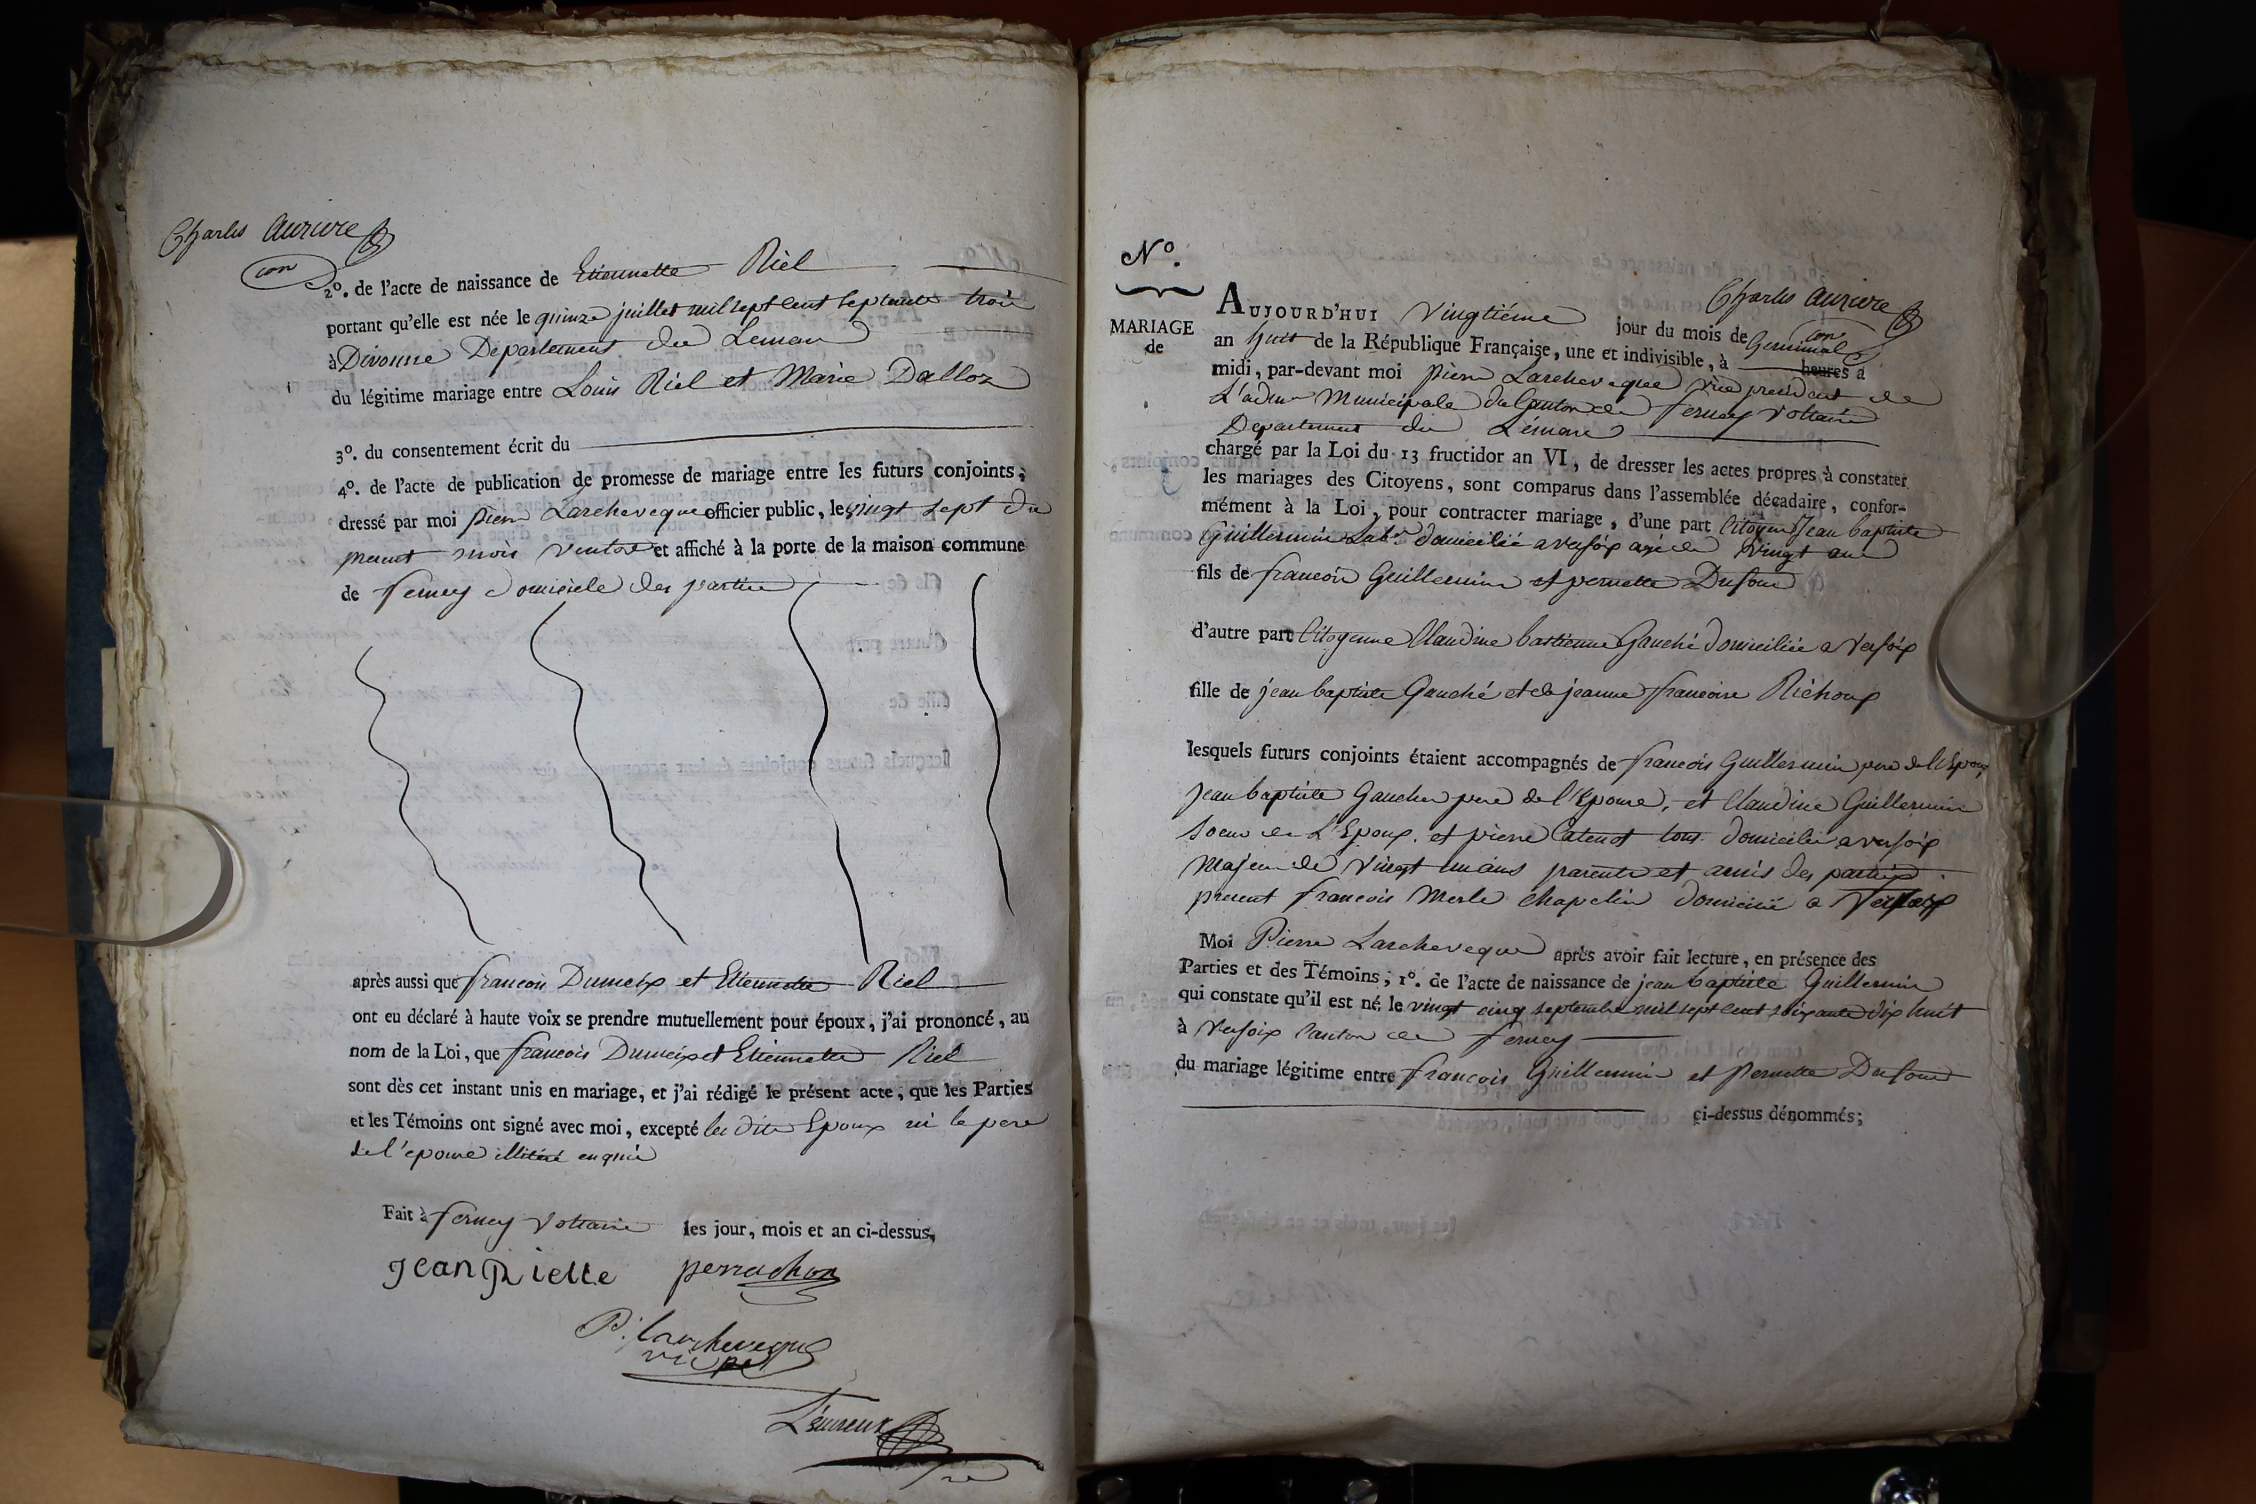 Charles Auzière
con
2°. de l'acte de naissance de Etiennette Riel
portant qu'elle est née le quinze juillet mil sept cent septante trois
à Divonne Departement du Leman
du légitime mariage entre Louis Riel et Marie Dalloz
3°. du consentement écrit du
4°. de l'acte de publication de promesse de mariage entre les futurs conjoints;
dressé par moi Pierre Larcheveque officier public, le vingt sept du
present mois ventose et affiché à la porte de la maison commune
de ferney domicile des parties
après aussi que françois Dumeix et Etiennette Riel
ont eu déclaré à haute voix se prendre mutuellement pour époux, j'ai prononcé, au
nom de la Loi, que françois Dumeix et Etiennette Riel
sont dès cet instant unis en mariage, et j'ai rédigé le présent acte, que les Parties
et les Témoins ont signé avec moi, excepté les dits Epoux ni le pere
de l'epouse illiteré enquis
Fait à ferney Voltaire les jour, mois et an ci-dessus,
jean Rielle perrachon
P. Larcheveque
vice pt
N°.
MARIAGE
de
Charles Auzière
con
AUJOURD'HUI Vingtiéme jour du mois de Germinal
an huit de la République Française, une et indivisible, à heures à
midi, par-devant moi Pierre Larcheveque vice president de
L'adm.on Municipale du Canton de ferney Voltaire
Departement du Léman
chargé par la Loi du 13 fructidor an VI, de dresser les actes propres à constater
les mariages des Citoyens, sont comparus dans l'assemblée décadaire, confor-
mément à la Loi, pour contracter mariage, d'une part Citoyen Jean baptiste
Guillermin Lab.r domicilié a versoix agé de vingt un
fils de françois Guillermin et pernette Dufour
d'autre part Citoyenne Claudine bastienne Gauché domiciliée a Versoix
fille de jean baptiste Gauché et de jeanne françoise Richoux
lesquels futurs conjoints étaient accompagnés de françois Guillermin pere de l'Epoux
jean baptiste Gaucher pere de l'Epouse, et Claudine Guillermin
soeur de L'Epoux. et pierre Catenot tous domicilié a versoix
Majeur de Vingt un ans parents et amis des parties
present françois Merle chapelin domicilié a Versoix
Moi Pierre Larcheveque après avoir fait lecture, en présence des
Parties et des Témoins; 1°. de l'acte de naissance de jean baptiste Guillermin
qui constate qu'il est né le vingt cinq septembre mil sept cent soixante dix huit
à Versoix Canton de ferney
du mariage légitime entre françois Guillermin et Pernette Dufour
ci-dessus dénommés;